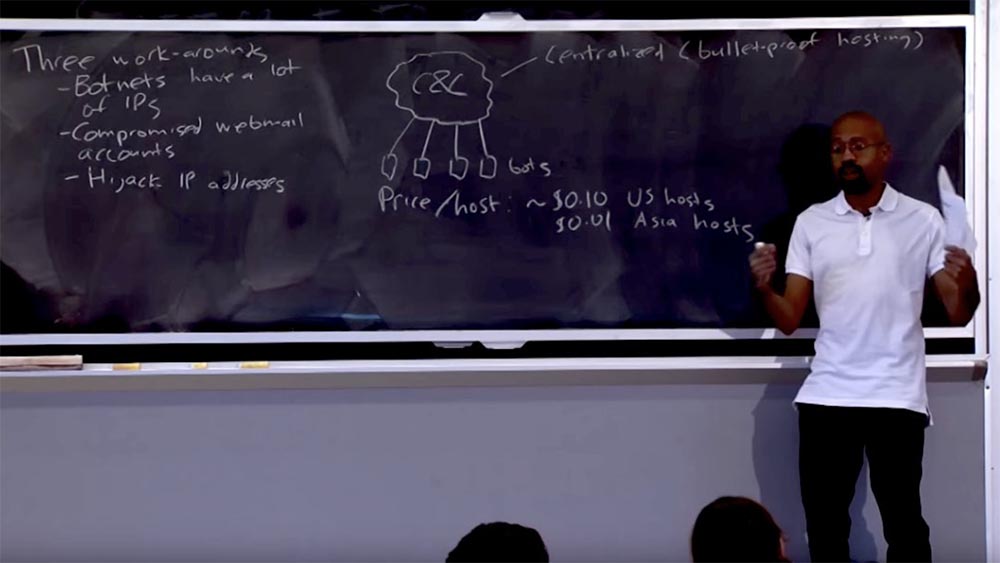 Three work-arounds
- Botnets have a lot
of IPs
- Compromised webmail
accounts
- Hijack IP addresses
C&C
centralized (bullet-proof hosting)
bots
Price/host: ~$0.10 US hosts
$0.01 Asia hosts